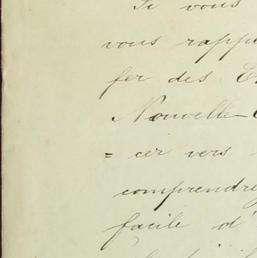 Si vous
vous rappe
fer des E
Nouvelle-
= cer vers
comprendre
facile d'